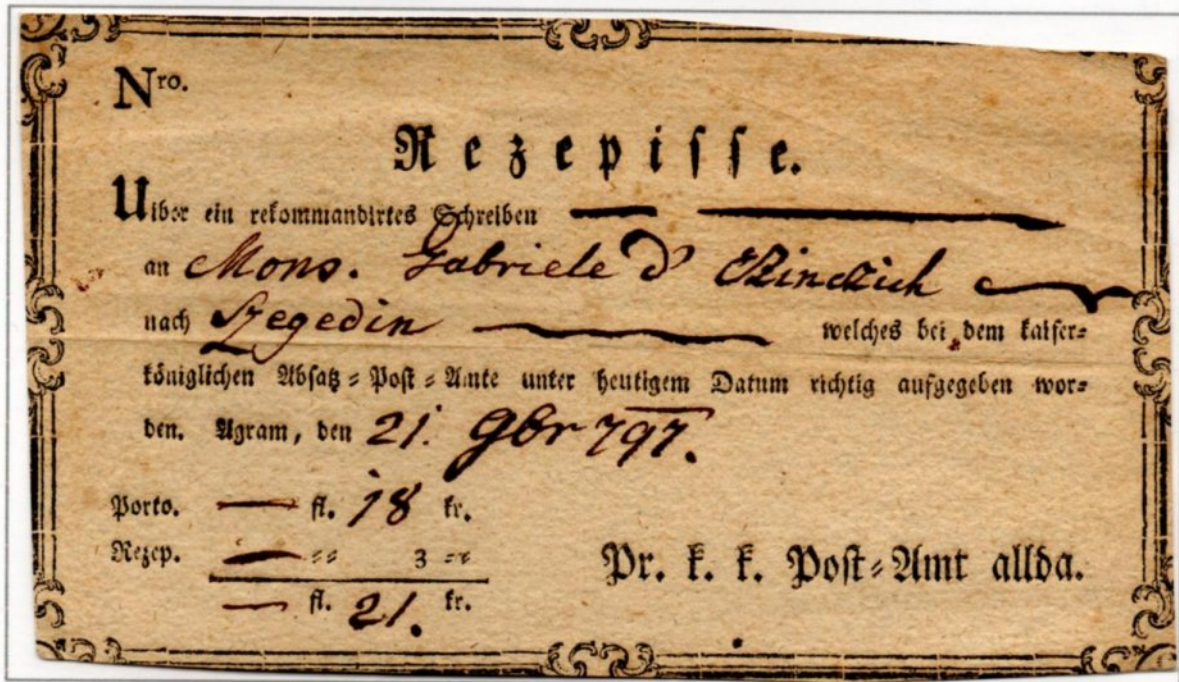 Nro.
Rezepisse.
Uiber ein rekommandirtes Schreiben
an Mons. Gabriele d'
nach Szegedin welches bei dem kaiser=
königlichen Absatz=Post=Amte unter heutigem Datum richtig aufgegeben wor=
den. Agram, den 21. 9br 797.
Porto. — fl. 18 kr.
Rezep. — == 3 ==
— fl. 21. kr.
Pr. k. k. Post=Amt allda.